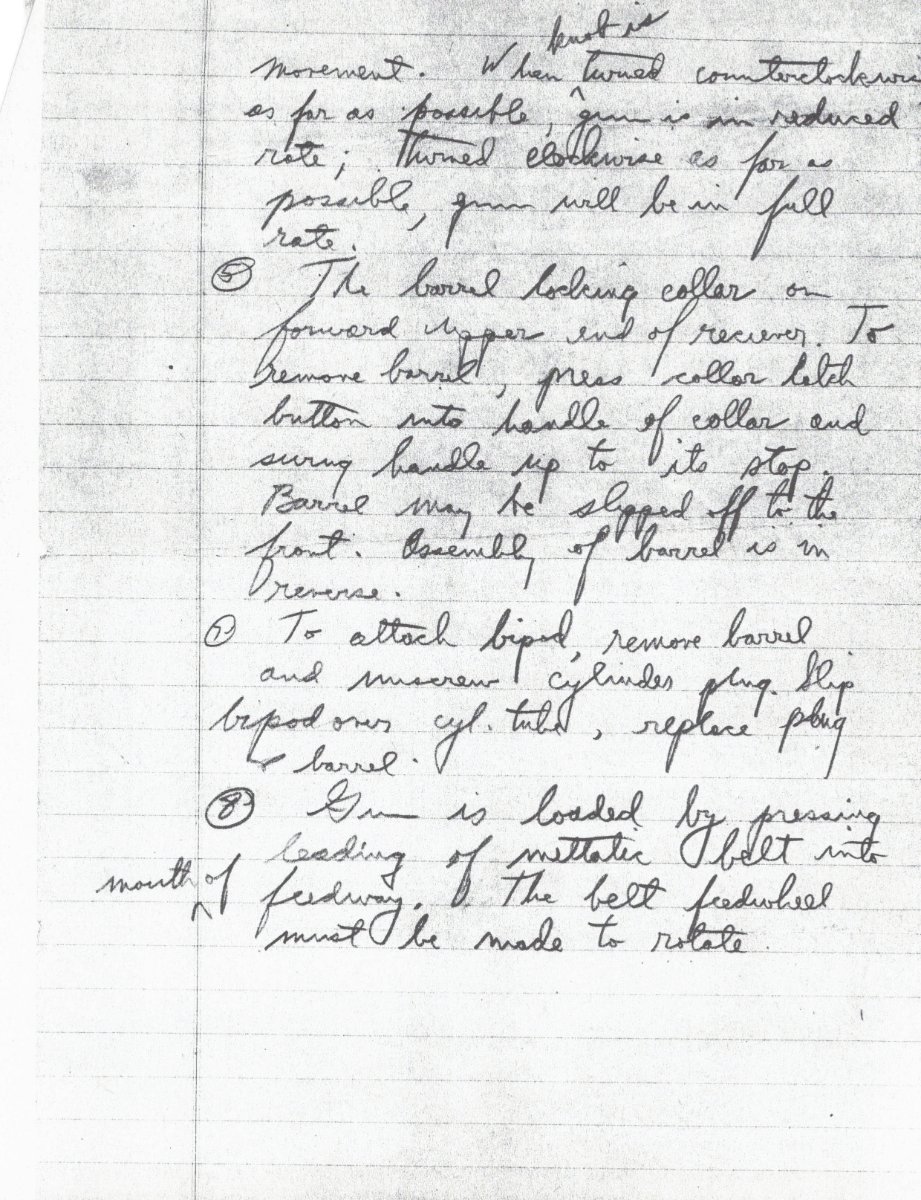 knob is
movement. When ^ turned counterclockwise
as far as possible, gun is in reduced
rate; turned clockwise as far as
possible, gun will be in full
rate.
⑤ The barrel locking collar on
forward upper end of reciever. To
remove barrel, press collar latch
button into handle of collar and
swing handle up to its stop.
Barrel may be slipped off to the
front. Assembly of barrel is in
reverse.
⑦ To attach bipod, remove barrel
and unscrew cylinder plug. Slip
bipod over cyl. tube, replace plug
& barrel.
⑧ Gun is loaded by pressing
leading of mettalic belt into
mouth of ^ feedway. The belt feedwheel
must be made to rotate.